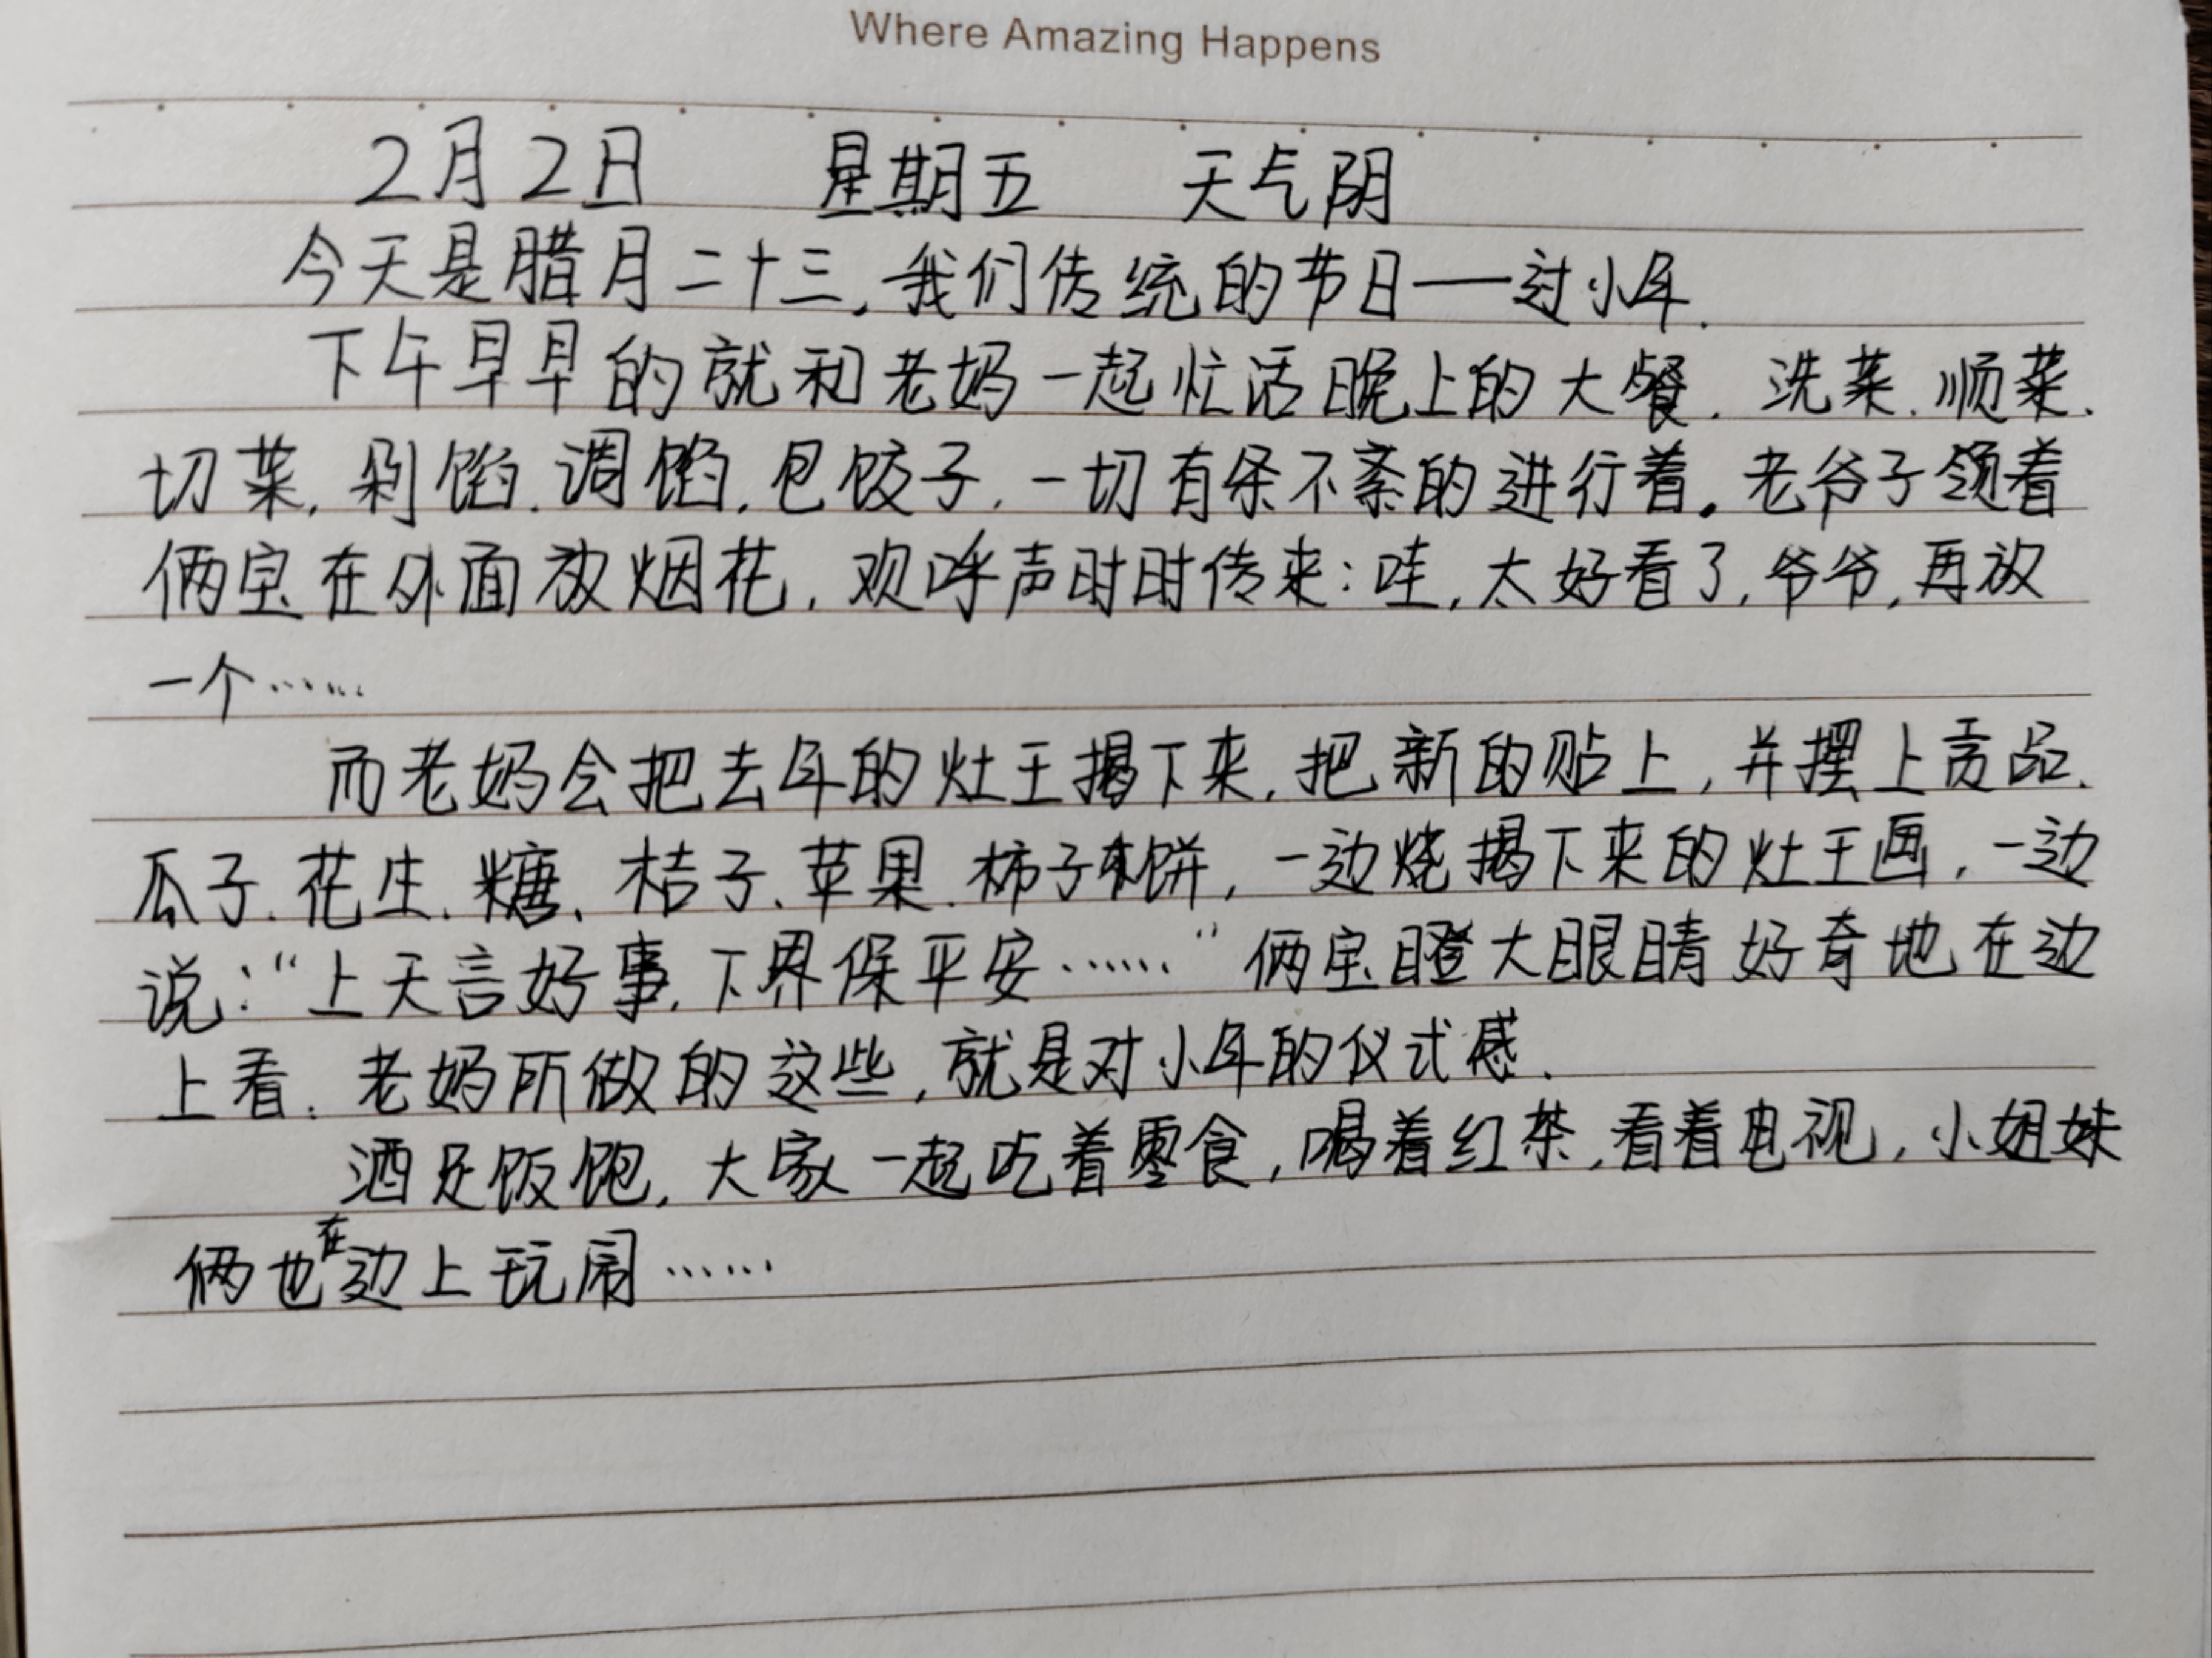 Where Amazing Happens
2月2日 星期五 天气阴
今天是腊月二十三,我们传统的节日——过小年.
下午早早的就和老妈一起忙活晚上的大餐.洗菜.顺菜.
切菜.剁馅.调馅.包饺子.一切有条不紊的进行着。老爷子领着
俩宝在外面放烟花,欢呼声时时传来:哇,太好看了,爷爷,再放
一个……
而老妈会把去年的灶王揭下来,把新的贴上,并摆上贡品.
瓜子.花生.糖.桔子.苹果.柿子饼,一边烧揭下来的灶王画,一边
说:“上天言好事,下界保平安……”俩宝瞪大眼睛好奇地在边
上看.老妈所做的这些,就是对小年的仪式感.
酒足饭饱,大家一起吃着零食,喝着红茶,看着电视,小姐妹
俩也在边上玩闹……